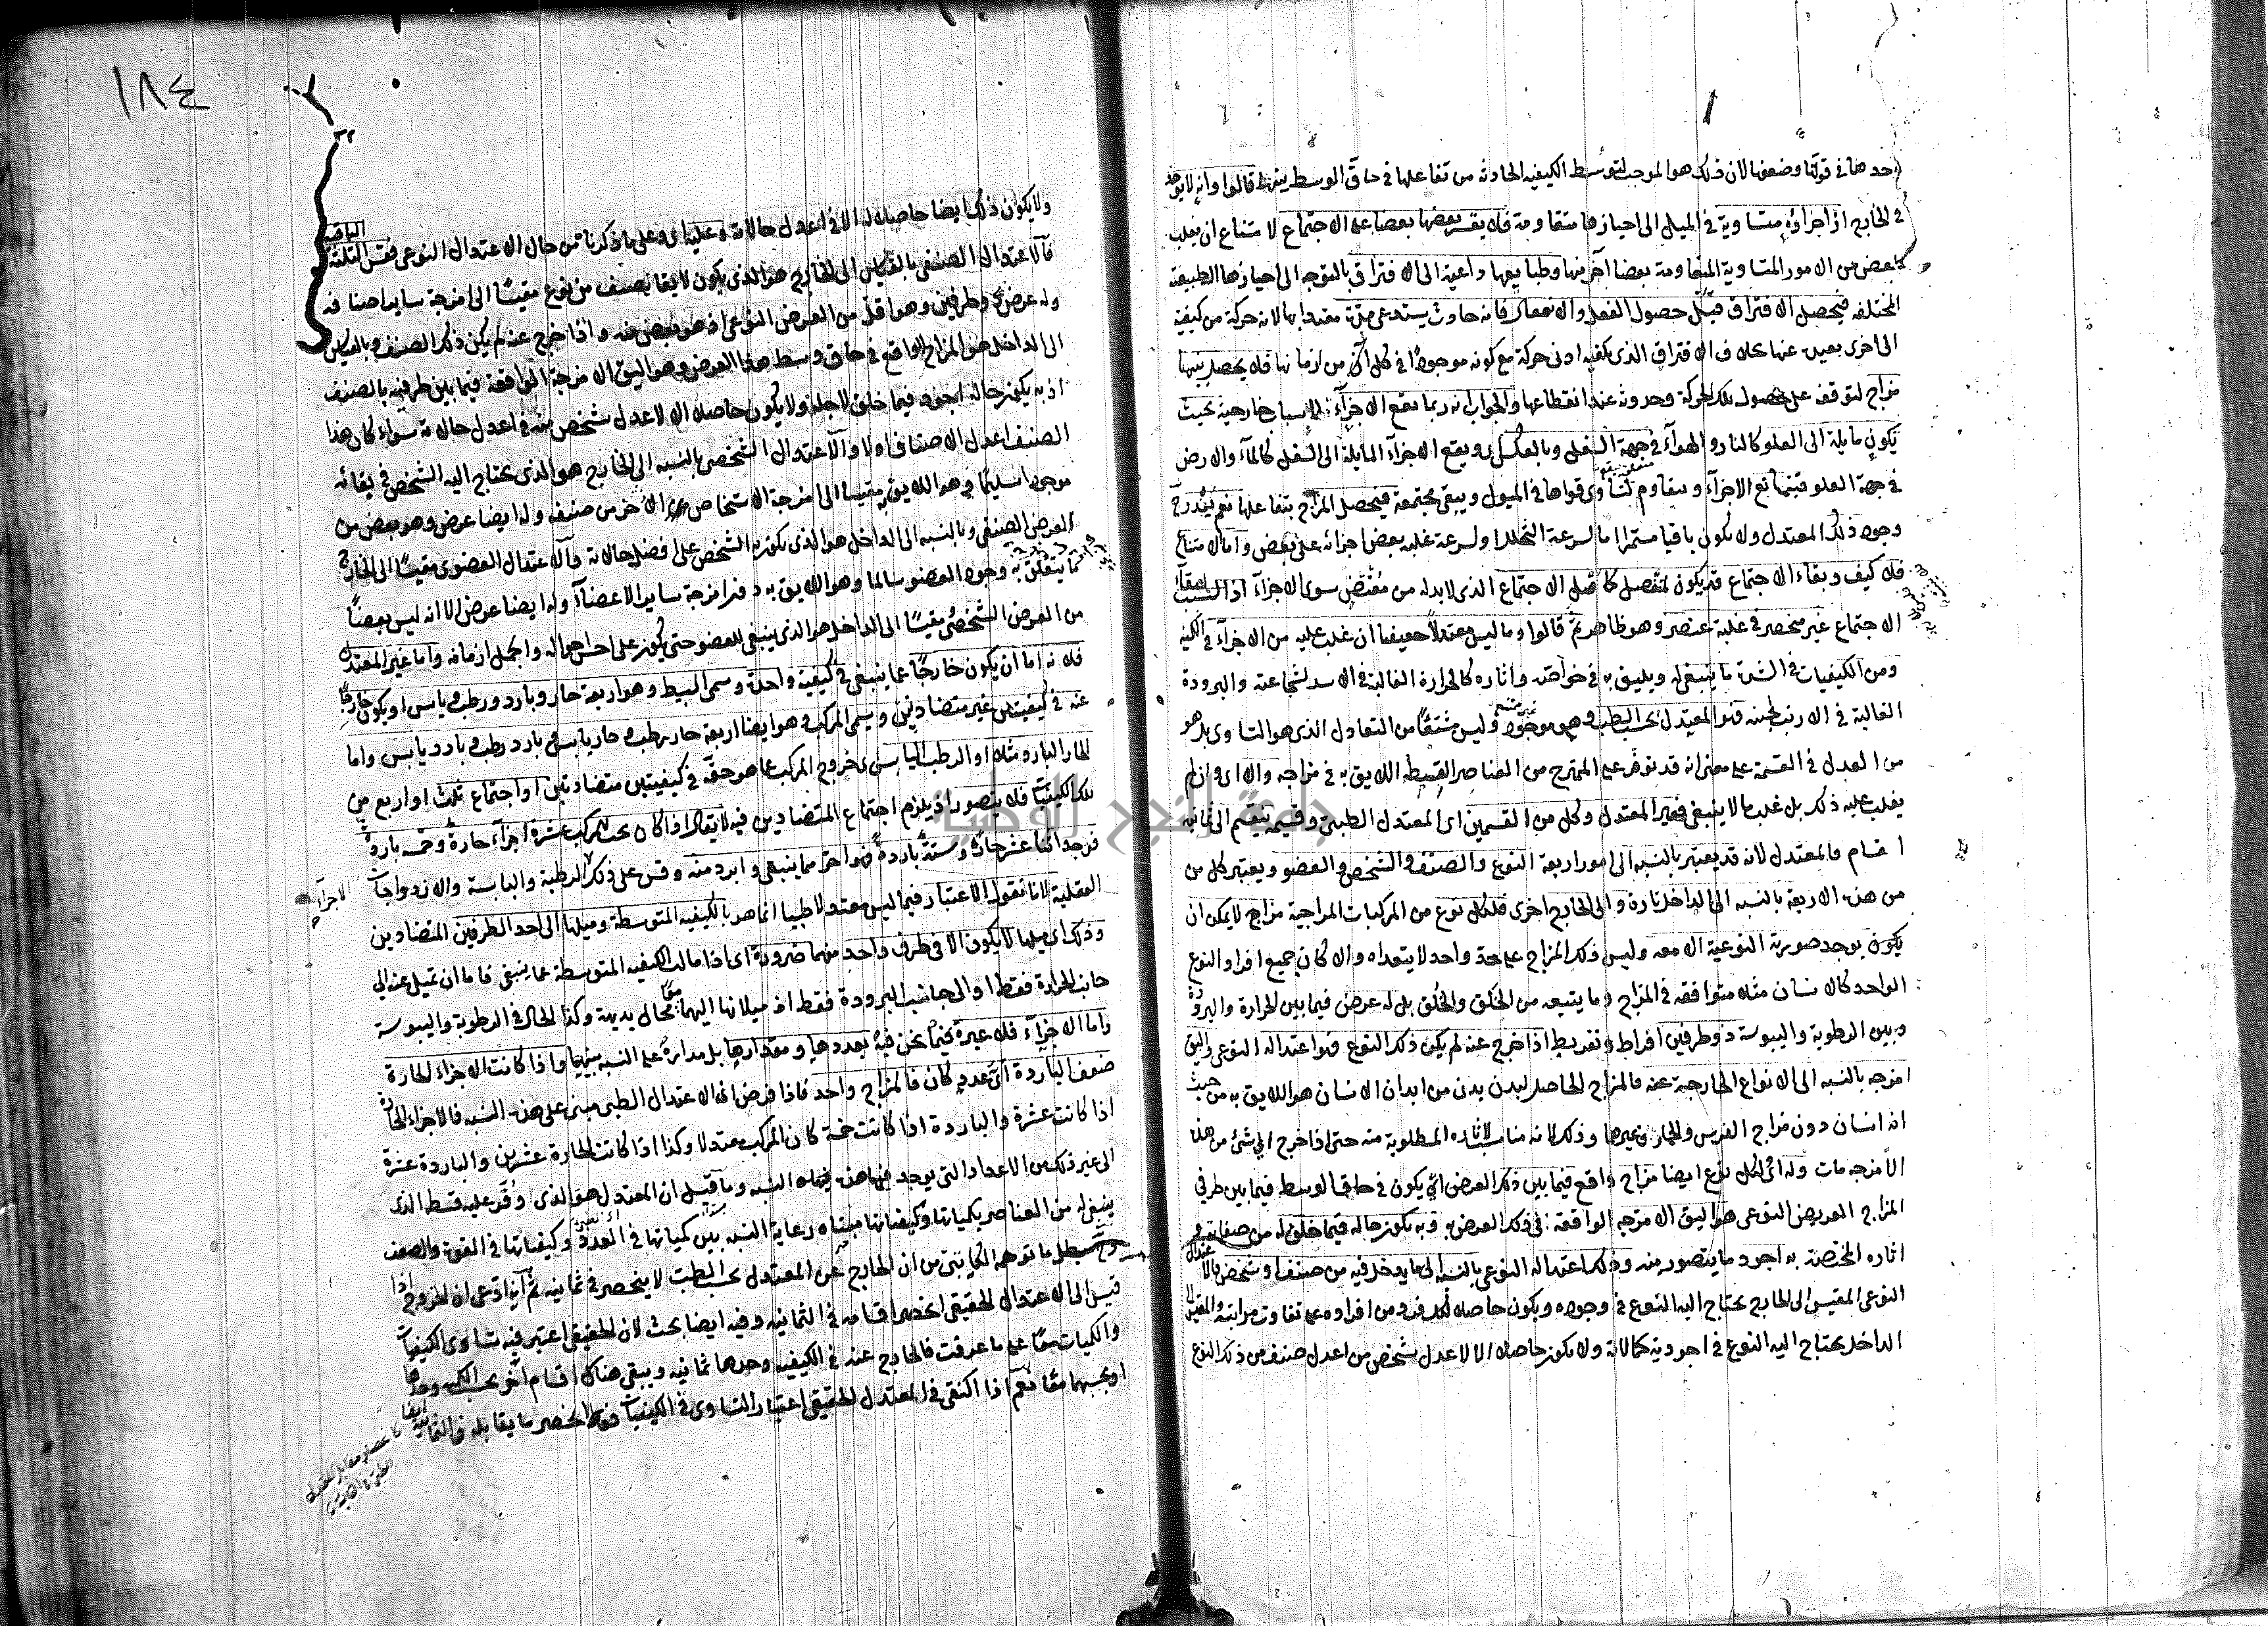 حدها في قوتها وضعفها لان ذلك هو الموجب لتوسط الكيفية الحادثة من تفاعلها في حاق الوسط بينها قالوا وانه لا يوجد
في الخارج اذ اجزاؤه متساوية في الميل الى احيازها متقاومة فلا يقسر بعضها بعضا على الاجتماع لامتناع ان يغلب
بعض من الامور المتساوية المتقاومة بعضا آخر منها وطبايعها داعية الى الافتراق بالتوجه الى احيازها الطبيعية
المختلفة فيحصل الافتراق قبل حصول الفعل والانفعال فانه حادث يستدعي مدة معتدا بها لانه حركة من كيفية
الى اخرى بعيدة عنها بخلاف الافتراق الذي يكفيه ادنى حركة مع كونه موجودا في كل آن من ازمانها فلا يحصل بينها
مزاج لتوقفه على حصول تلك الحركة وحدوثه عند انقطاعها والجواب انه ربما يقع الاجزاء لاسباب خارجية بحيث
يكون مايلة الى العلو كالنار والهواء في جهة السفل وبالعكس اي ويقع الاجزاء المايلة الى السفل كالماء والارض
في جهة العلو فيتمانع الاجزاء ويتقاوم لتساوي قواها في الميول ويبقى مجتمعة فيحصل المزاج بتفاعلها نعم يندر
وجود ذلك المعتدل ولا يكون باقيا مستمرا اما لسرعة التحلل او لسرعة غلبة بعض اجزائه على بعض واما الامتناع
فلا كيف وبقاء الاجتماع قد يكون لمنفصل كما قبل الاجتماع الذي لا بد له من مقتض سوى الاجزاء اذ السبب
الاجتماع غير منحصر في غلبة عنصر وهو ظاهر ثم قالوا وما ليس معتدلا حقيقيا ان غلب عليه من الاجزاء في الكم
ومن الكيفيات في الشدة ما ينبغي له ويليق به في خواصه واثاره كالحرارة الغالبة في الاسد لشجاعته والبرودة
الغالبة في الارنب لجبنه فهو المعتدل بحسب الطب وهو موجود وليس مشتقا من التعادل الذي هو التساوي بل هو
من العدل في القسمة على معنى انه قد توفر على الممتزج من العناصر القسط اللايق به في مزاجه والا اي وان لم
يغلب عليه ذلك بل غلب ما لا ينبغي فغير المعتدل وكل من القسمين اي المعتدل الطبي وقسيمه ينقسم الى ثمانية
اقسام فالمعتدل لانه قد يعتبر بالنسبة الى امور اربعة النوع والصنف والشخص والعضو ويعتبر كل من
من هذه الاربعة بالنسبة الى الداخل تارة والى الخارج اخرى فلكل نوع من المركبات المزاجية مزاج لا يمكن ان
يكون يوجد صورته النوعية الا معه وليس ذلك المزاج على حد واحد لا يتعداه والا كان جميع افراد النوع
الواحد كالانسان مثلا متوافقة في المزاج وما يتبعه من الخلق والخلق بل له عرض فيما بين الحرارة والبرودة
وبين الرطوبة واليبوسة ذو طرفين افراط وتفريط اذا خرج عنه لم يكن ذلك النوع فهو اعتداله النوعي واليق
امزجة بالنسبة الى الانواع الخارجية عنه فالمزاج الحاصل لبدن بدن من ابدان الانسان هو اللايق به من حيث
انه انسان دون مزاج الفرس والحمار وغيرها وذلك لانه مناسب لاثاره المطلوبة منه حتى اذا خرج الى شئ من هذه
الامزجة مات وله اي لكل نوع ايضا مزاج واقع فيما بين ذلك العرض اي يكون في حاق الوسط فيما بين طرفي
المزاج العريض النوعي هو اليق الامزجة الواقعة في ذلك العرض به وبه يكون حاله فيما خلق له من صفاته و
اثاره المختصة به اجود ما يتصور منه وذلك اعتداله النوعي بالنسبة الى ما يدخل فيه من صنف او شخص فالاعتدال
النوعي المقيس الى الخارج يحتاج اليه النوع في وجوده ويكون حاصلا لكل فرد من افراده على تفاوت مراتبه والمقيس الى
الداخل يحتاج اليه النوع في اجودية كمالاته ولا يكون حاصلا الا لاعدل شخص من اعدل صنف من ذلك النوع
١٨٤
ولا يكون ذلك ايضا حاصلا له الا في اعدل حالاته وعليه اي وعلى ما ذكرنا من حال الاعتدال النوعي فقس الثلثة الباقية
فالاعتدال الصنفي بالقياس الى الخارج هو الذي يكون لايقا بصنف من نوع مقيسا الى امزجة ساير اصنافه
وله عرض ذو طرفين وهو اقل من العرض النوعي اذ هو بعض منه واذا خرج عنه لم يكن ذلك الصنف وبالقياس
الى الداخل هو المزاج الواقع في حاق وسط هذا العرض وهو اليق الامزجة الواقعة فيما بين طرفيه بالصنف
اذ به يكون حاله اجود فيما خلق لاجله ولا يكون حاصلا الا لاعدل شخص منه في اعدل حالاته سواء كان هذا
الصنف اعدل الاصناف او لا والاعتدال الشخصي بالنسبة الى الخارج هو الذي يحتاج اليه الشخص في بقائه
موجودا سليما وهو اللايق به مقيسا الى امزجة الاشخاص الاخر من صنفه وله ايضا عرض وهو بعض من
العرض الصنفي وبالنسبة الى الداخل هو الذي يكون به الشخص على افضل حالاته والاعتدال العضوي مقيسا الى الخارج
ما يتعلق به وجود العضو سالما وهو اللايق به دون امزجة ساير الاعضاء وله ايضا عرض الا انه ليس بعضا
من العرض الشخصي ومقيسا الى الداخل هو الذي ينبغي للعضو حتى يكون على احسن احواله واكمل ازمانه واما غير المعتدل
فلانه اما ان يكون خارجا عما ينبغي في كيفية واحدة ويسمى البسيط وهو اربعة حار وبارد ورطب ويابس او يكون خارجا
عنه في كيفيتين غير متضادتين ويسمى المركب وهو ايضا اربعة حار رطب وحار يابس وبارد رطب وبارد يابس واما
الحار البارد مثلا او الرطب اليابس اي خروج المركب عما هو حقه في كيفيتين متضادتين او اجتماع ثلث او اربع من
تلك الكيفيات فلا يتصور اذ يلزم اجتماع المتضادين فيه لا يقال اذا كان بحسب المركب عشرة اجزاء حارة وخمسة باردة
فزيد اثنا عشر حارة وستة باردة فهو احر مما ينبغي وابرد منه وقس على ذلك الرطبة واليابسة والازدواجات
العقلية لانا نقول الاعتبار فيما ليس معتدلا طبيا انما هو بالكيفية المتوسطة وميلها الى احد الطرفين المتضادين
وذلك اي ميلها لا يكون الا في طرف واحد منهما ضرورة اي اذا مالت الكيفية المتوسطة عما ينبغي فاما ان تميل عنه الى
جانب الحرارة فقط او الى جانب البرودة فقط اذ ميلانها اليهما معا محال بديهة وكذا الحال في الرطوبة واليبوسة
واما الاجزاء فلا عبرة فيما نحن فيه بعددها ومقدارها بل مداره على النسبة بينها واذا كانت الاجزاء الحارة
ضعف الباردة اي عدد كان فالمزاج واحد فاذا فرض ان الاعتدال الطبي مبني على هذه النسبة فالاجزاء الحارة
اذا كانت عشرة والباردة اذا كانت خمسة كان المركب معتدلا وكذا اذا كانت الحارة عشرين والباردة عشرة
الى غير ذلك من الاعداد التي يوجد فيها هذه النسبة وما قيل ان المعتدل هو الذي وفر عليه قسط الذي
ينبغي له من العناصر بكمياتها وكيفياتها مبناه رعاية النسبة بين كمياتها في العدد وكيفياتها في القوة والضعف
وح يبطل ما توهمه الكاتبي من ان الخارج عن المعتدل بحسب الطب لا ينحصر في ثمانية ثم انه ادعى ان الخروج اذا
قيس الى الاعتدال الحقيقي انحصر اقسامه في الثمانية وفيه ايضا بحث لان الحقيقي اعتبر فيه تساوي الكيفيات
والكميات معا على ما عرفت فالخارج عنه في الكيفية وحدها ثمانية ويبقى هناك اقسام اخر بحسب الكمية وحدها
او بحسبهما معا نعم اذا اكتفى في المعتدل الحقيقي اعتبار التساوي في الكيفيات فقط انحصر ما يقابله في الثمانية ايضا
الاجزاء
جامعة النجاح الوطنية